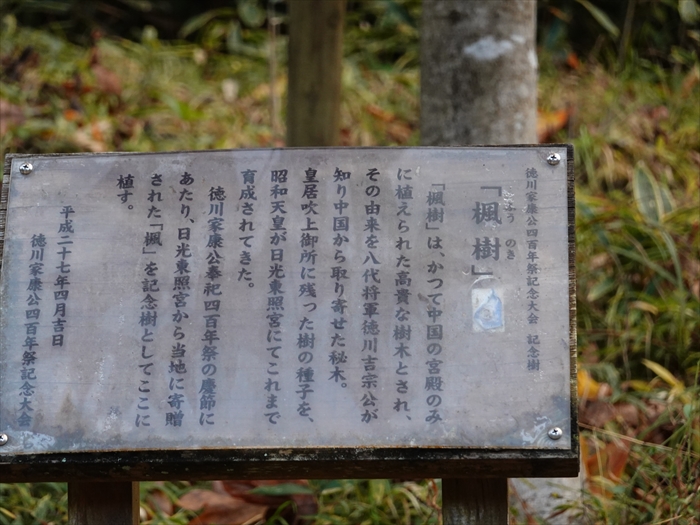 徳川家康公四百年祭記念大会 記念樹
「楓樹」
「楓樹」は、かつて中国の宮殿のみ
に植えられた高貴な樹木とされ、
その由来を八代将軍徳川吉宗公が
知り中国から取り寄せた秘木。
皇居吹上御所に残った樹の種子を、
昭和天皇が日光東照宮にてこれまで
育成されてきた。
徳川家康公奉祀四百年祭の慶節に
あたり、日光東照宮から当地に寄贈
された「楓」を記念樹としてここに
植す。
平成二十七年四月吉日
徳川家康公四百年祭記念大会